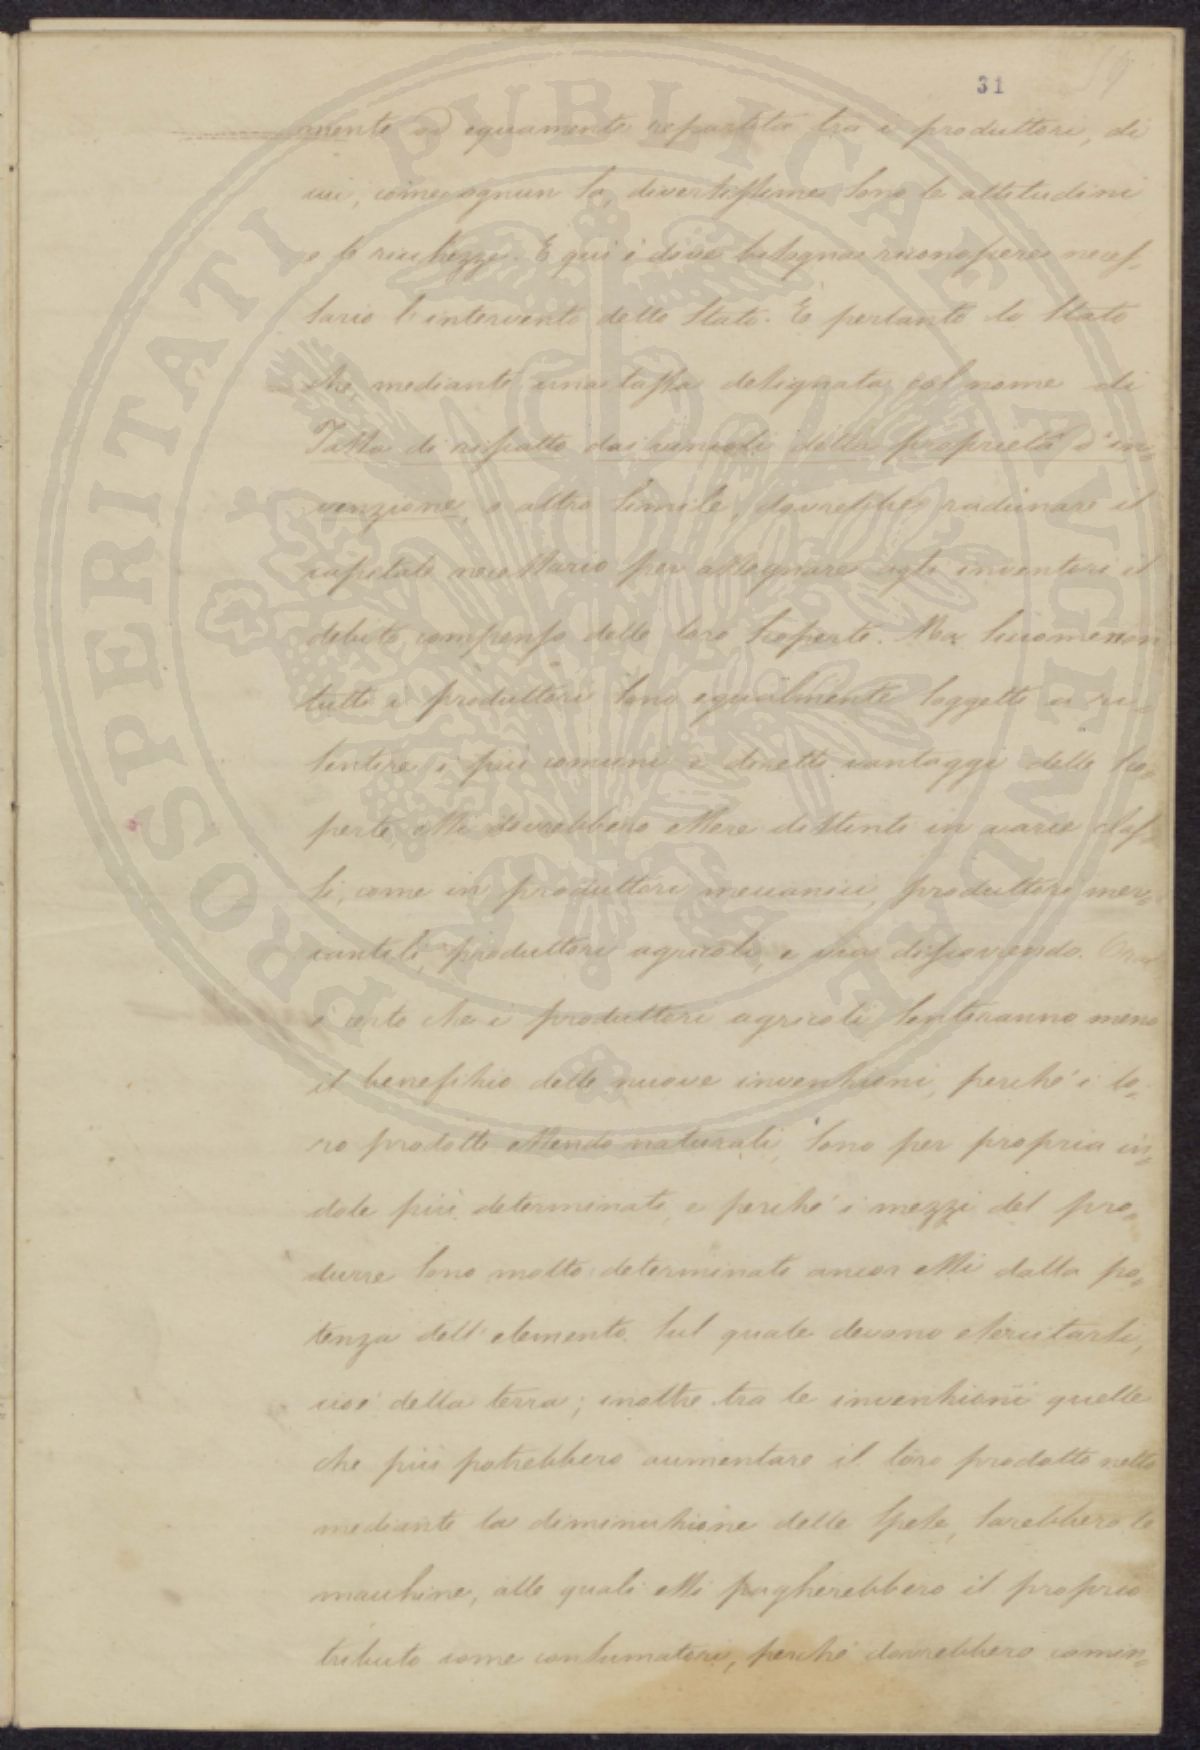 31
59
mente ed equamente repartita tra i produttori, di
cui, come ognun sa, diversissime sono le attitudini
e le ricchezze. E qui è dove bisogna riconoscere neces-
sario l'intervento dello Stato. È pertanto lo Stato
che, mediante una tassa designata col nome di
Tassa di riscatto dai vincoli della proprietà d'in-
venzione, o altro simile, dovrebbe radunare il
capitale necessario per assegnare agli inventori il
debito compenso delle loro scoperte. Ma siccome non
tutti i produttori sono egualmente soggetti a ri-
sentire i più comuni e diretti vantaggi delle sco-
perte, essi dovrebbero essere distinti in varie clas-
si, come in produttori meccanici, produttori mer-
cantili, produttori agricoli, e via discorrendo. Ora
è certo che i produttori agricoli sentiranno meno
il benefizio delle nuove invenzioni, perchè i lo-
ro prodotti essendo naturali, sono per propria in-
dole più determinati, e perchè i mezzi del pro-
durre sono molto determinati ancor essi dalla po-
tenza dell'elemento sul quale devono esercitarsi,
cioè della terra; inoltre tra le invenzioni quelle
che più potrebbero aumentare il loro prodotto netto
mediante la diminuzione delle spese, sarebbero le
macchine, alle quali essi pagherebbero il proprio
tributo come consumatori, perchè dovrebbero comin-
PROSPERITATI PVBLICAE AVGENDAE